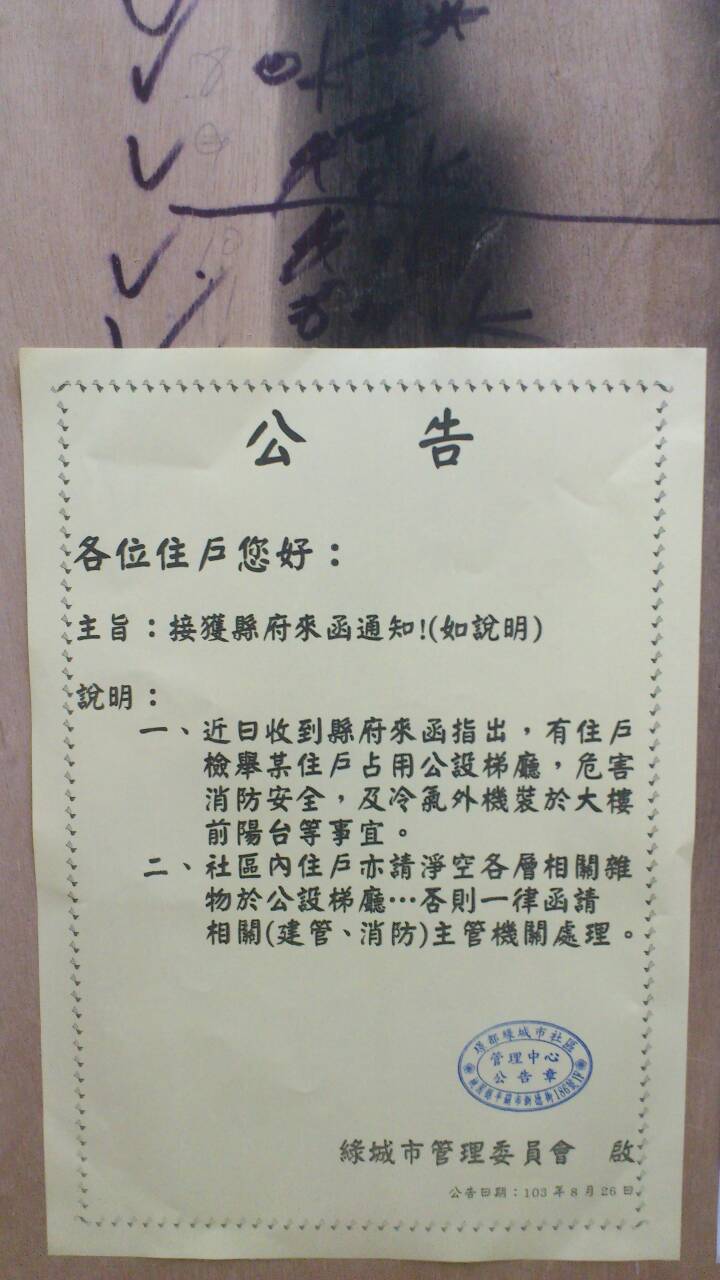 OK
公 告
各位住戶您好：
主旨：接獲縣府來函通知!(如說明)
說明：
一、近日收到縣府來函指出，有住戶
檢舉某住戶占用公設梯廳，危害
消防安全，及冷氣外機裝於大樓
前陽台等事宜。
二、社區內住戶亦請淨空各層相關雜
物於公設梯廳…否則一律函請
相關(建管、消防)主管機關處理。
璟都綠城市社區
管理中心
公告章
桃園縣平鎮市新德街186號1F
綠城市管理委員會 啟
公告日期：103年8月26日